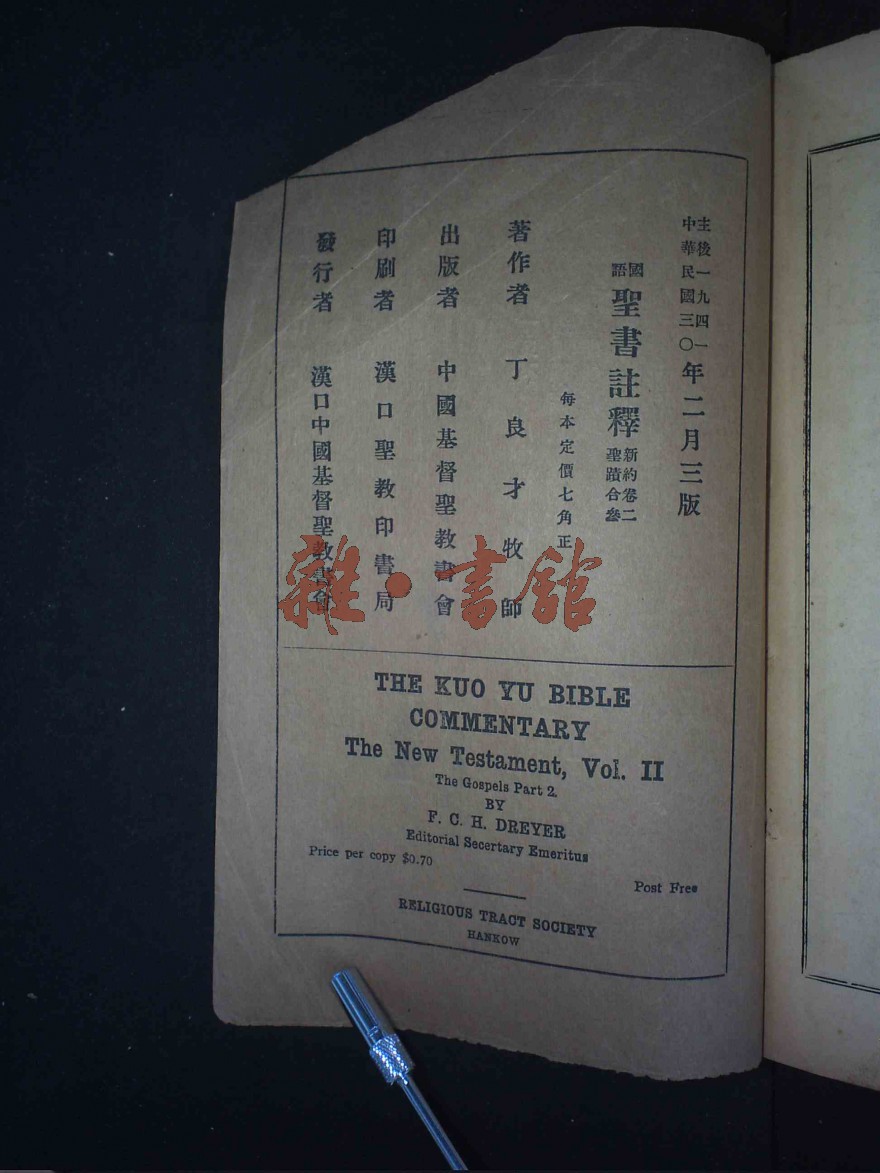 主後一九四一
中華民國三〇年二月三版
國語聖書註釋 新約卷二 聖蹟合參
每本定價七角正
著作者 丁良才牧師
出版者 中國基督聖教書會
印刷者 漢口聖教印書局
發行者 漢口中國基督聖教書會
雜·書館
THE KUO YU BIBLE
COMMENTARY
The New Testament, Vol. II
The Gospels Part 2.
BY
F. C. H. DREYER
Editorial Secertary Emeritus
Price per copy $0.70
Post Free
RELIGIOUS TRACT SOCIETY
HANKOW